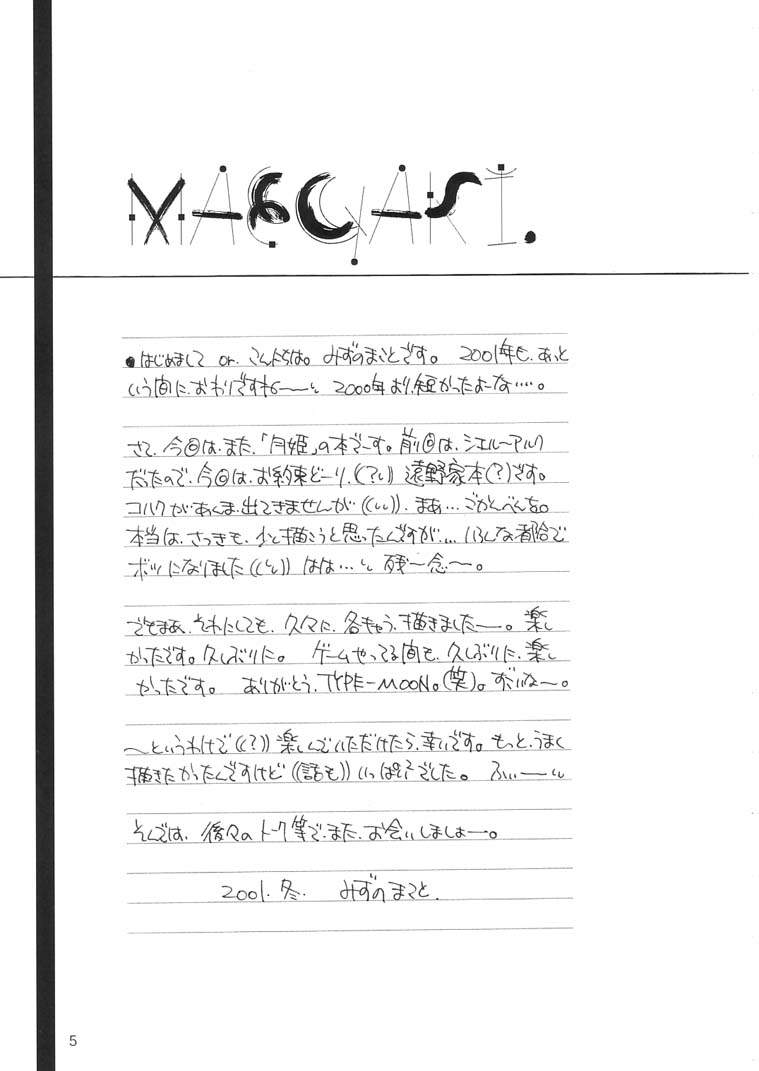 MAEGAKI.
●はじめまして or. こんにちは。みずのまことです。 2001年も、あっと
いう間に、おわりですね〜〜い 2000年より、短かったよーな…。
さて、今回は、また、「月姫」の本でーす。前回は、シエル〜アルク
だったので、今回は、お約束どーり、(?い) 遠野家本(?)です。
コハクが、あんま、出てきませんが((い))、まあ…ごかんべんを。
本当は、さつきも、少し描こうと思ったんですが…いろんな都合で
ボツになりました((い)) はは…い 残〜念〜。
でもまあ、それにしても、久々に、各きゃら、描きましたー。楽し
かったです。久しぶりに。 ゲームやってる間も、久しぶりに、楽し
かったです。 ありがとう、TYPE-MOON。(笑)。すごいな〜。
〜というわけで((?)) 楽しんでいただけたら、幸いです。もっと、うまく
描きたかったんですけど((話も)) いっぱいでした。 ふぃーい
そんでは、後々のトーク等で、また、お会いしましょー。
2001. 冬. みずのまこと.
5